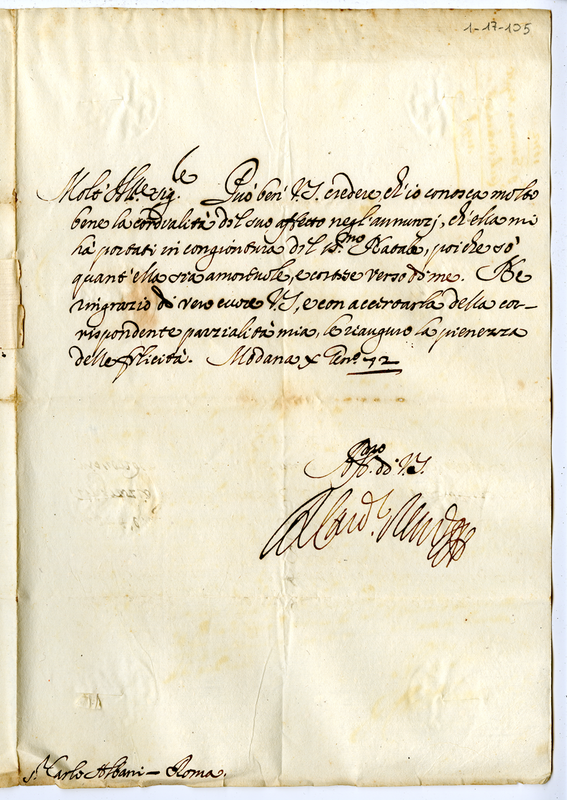 1-17-105
Molt' Ill.re Sig.re Può ben' V.S. credere, ch'io conosca molto
bene la cordialità del suo affetto negl'annunzj, ch'ella mi
hà portati in congiontura del S.mo Natale, poiche sò
quant'ella sia amorevole, e cortese verso di me. Ne
ringrazio di vero cuore V.S., e con accertarla della cor-
rispondente parzialità mia, le riauguro la pienezza
delle felicità. Modana X Gen.o 72
di V.S.
Il Card.l
S.r Carlo Albani - Roma.